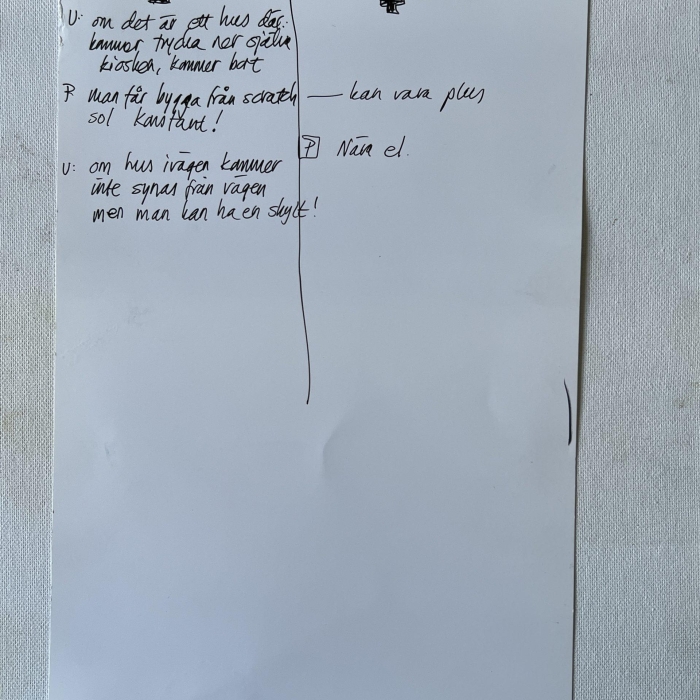 U: om det är ett hus där.
kommer trycka ner själva
kiosken, kommer bort
P man får bygga från scratch — kan vara plus
sol konstant!
P Nära el.
U: om hus ivägen kommer
inte synas från vägen
men man kan ha en skylt!